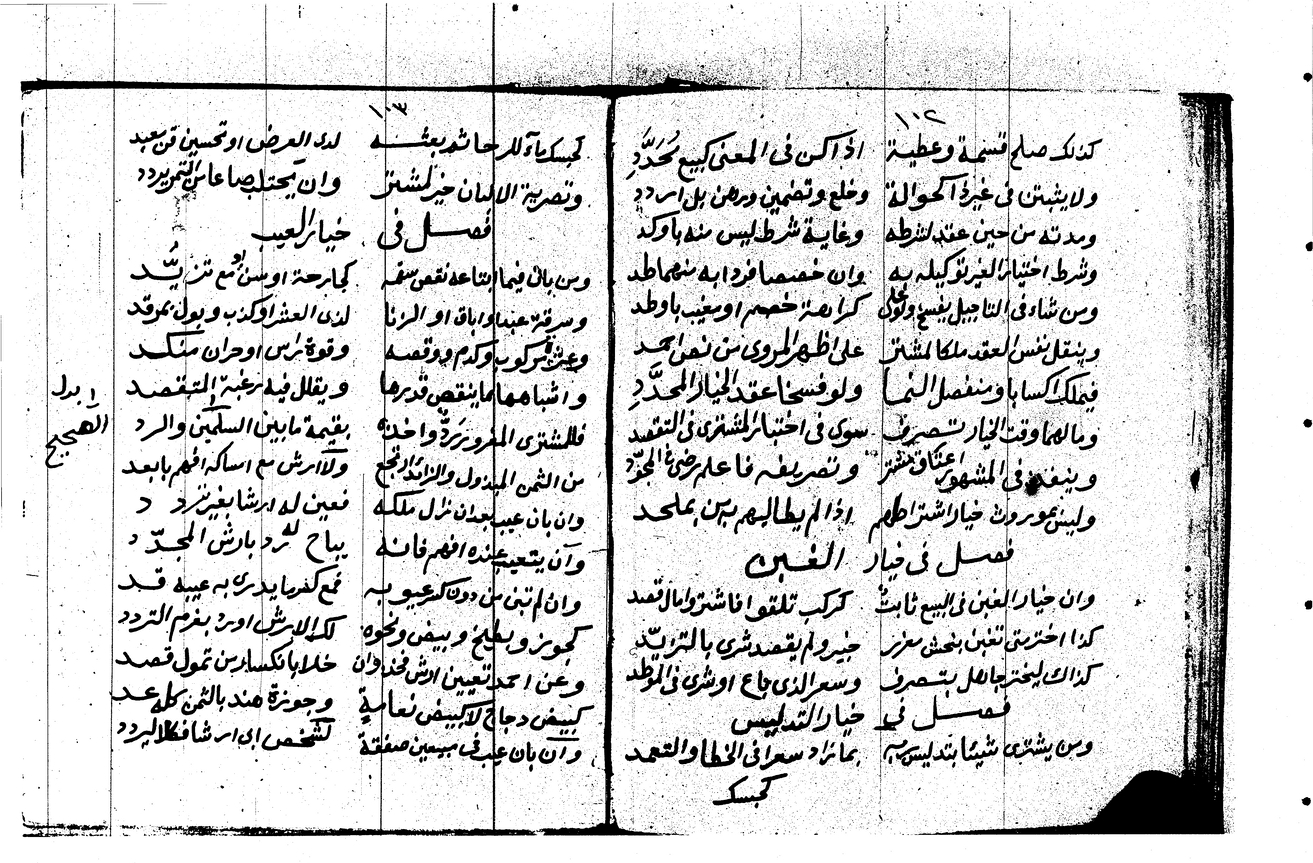 ١٠٢
كذلك صلح قسمة وعطية اذا كن فى المعنى كبيع مُحَدَّدِ
ولا يثبتن فى غيرة الحوالة وخلع وتضمين ورهن بل اردد
ومدته من حين عقد لشرطه وغاية شرط ليس منه باوكد
وشرط اختيار الغير توكيله به وان خصصا فردا به منهما طد
ومن شاء فى التاجيل يفسخ ولو على كراهة خصم او مغيب باوطد
وينقل نفس العقد ملكا لمشتر على اظهر المروى من نص احمد
فيملك اكسابا ومنفصل النما ولو فسخا عقد الخيار المحدَّدِ
وما لهما وقت الخيار تصرف سوى فى اختبار المشترى فى التقصد
وينفذ فى المشهور اعتاق مشتر وتصريفه فاعلم رضىً المجوّد
وليس بموروث خيار اشتراطهم اذا لم يطالبهم به من بملحد
فصل فى خيار الغبن
وان خيار الغبن فى البيع ثابت كركب تلقوا فاشتروا مال قصد
كذا اختر متى تغبن بنجش معزز خبير ولم يقصد شرى بالتزيّد
كذاك ليختر جاهل بتصرف وسعر الذى باع او شرى فى الموطد
فصل فى خيار التدليس
ومن يشترى شيئا بتدليس ربه بما زاد سعرا فى الخطا والتعمد
كحبسك
١٠٣
كحبسك ماء للرحا ثم بعثه لدى العرض او تحسين قن معبد
وتصرية الالبان خير لمشتر وان يحتلب صاعا من التمر يردد
فصل فى خيار العيب
ومن بان فيما ابتاعه نقص سفه كجارحة او سن او مع تزيُّد
وسرقة عبد او اباق او الزنا لذى العشر او كذب وبول بمرقد
وعثرة مركوب وكدم ورفصه وقوة راس او حران منكد
واشباهها مما ينقص قدرها ويقلل فيه رغبة المتقصد
فللمشترى المغرور رَدٌّ واخذه بقيمة ما بين السلمين والرد
من الثمن المبذول والزائد ارتجع ولا ارش مع امساكه افهم بابعد
وان بان عيب بعد ان زال ملكه فعين له ارشا بغير تردد
وان يتعيب عنده افهم فانه يباح له رد بارش المجدّد
وان لم تبن من دون كسر عيوبه فمع كسر ما يدرى به عيبه قد
كجوز وبطيخ وبيض ونحوه لك الارش او رد بغرم التردد
وعن احمد تعيين ارش فخذ وان خلا بانكسار من تمول قصد
كبيض دجاج لا كبيض نعامة وجوزة هند بالثمن كله عد
وان بان عيب فى مبيعين صفقة لشخص ابى ارشا فكلا ليردد
ابدل
الصحيح